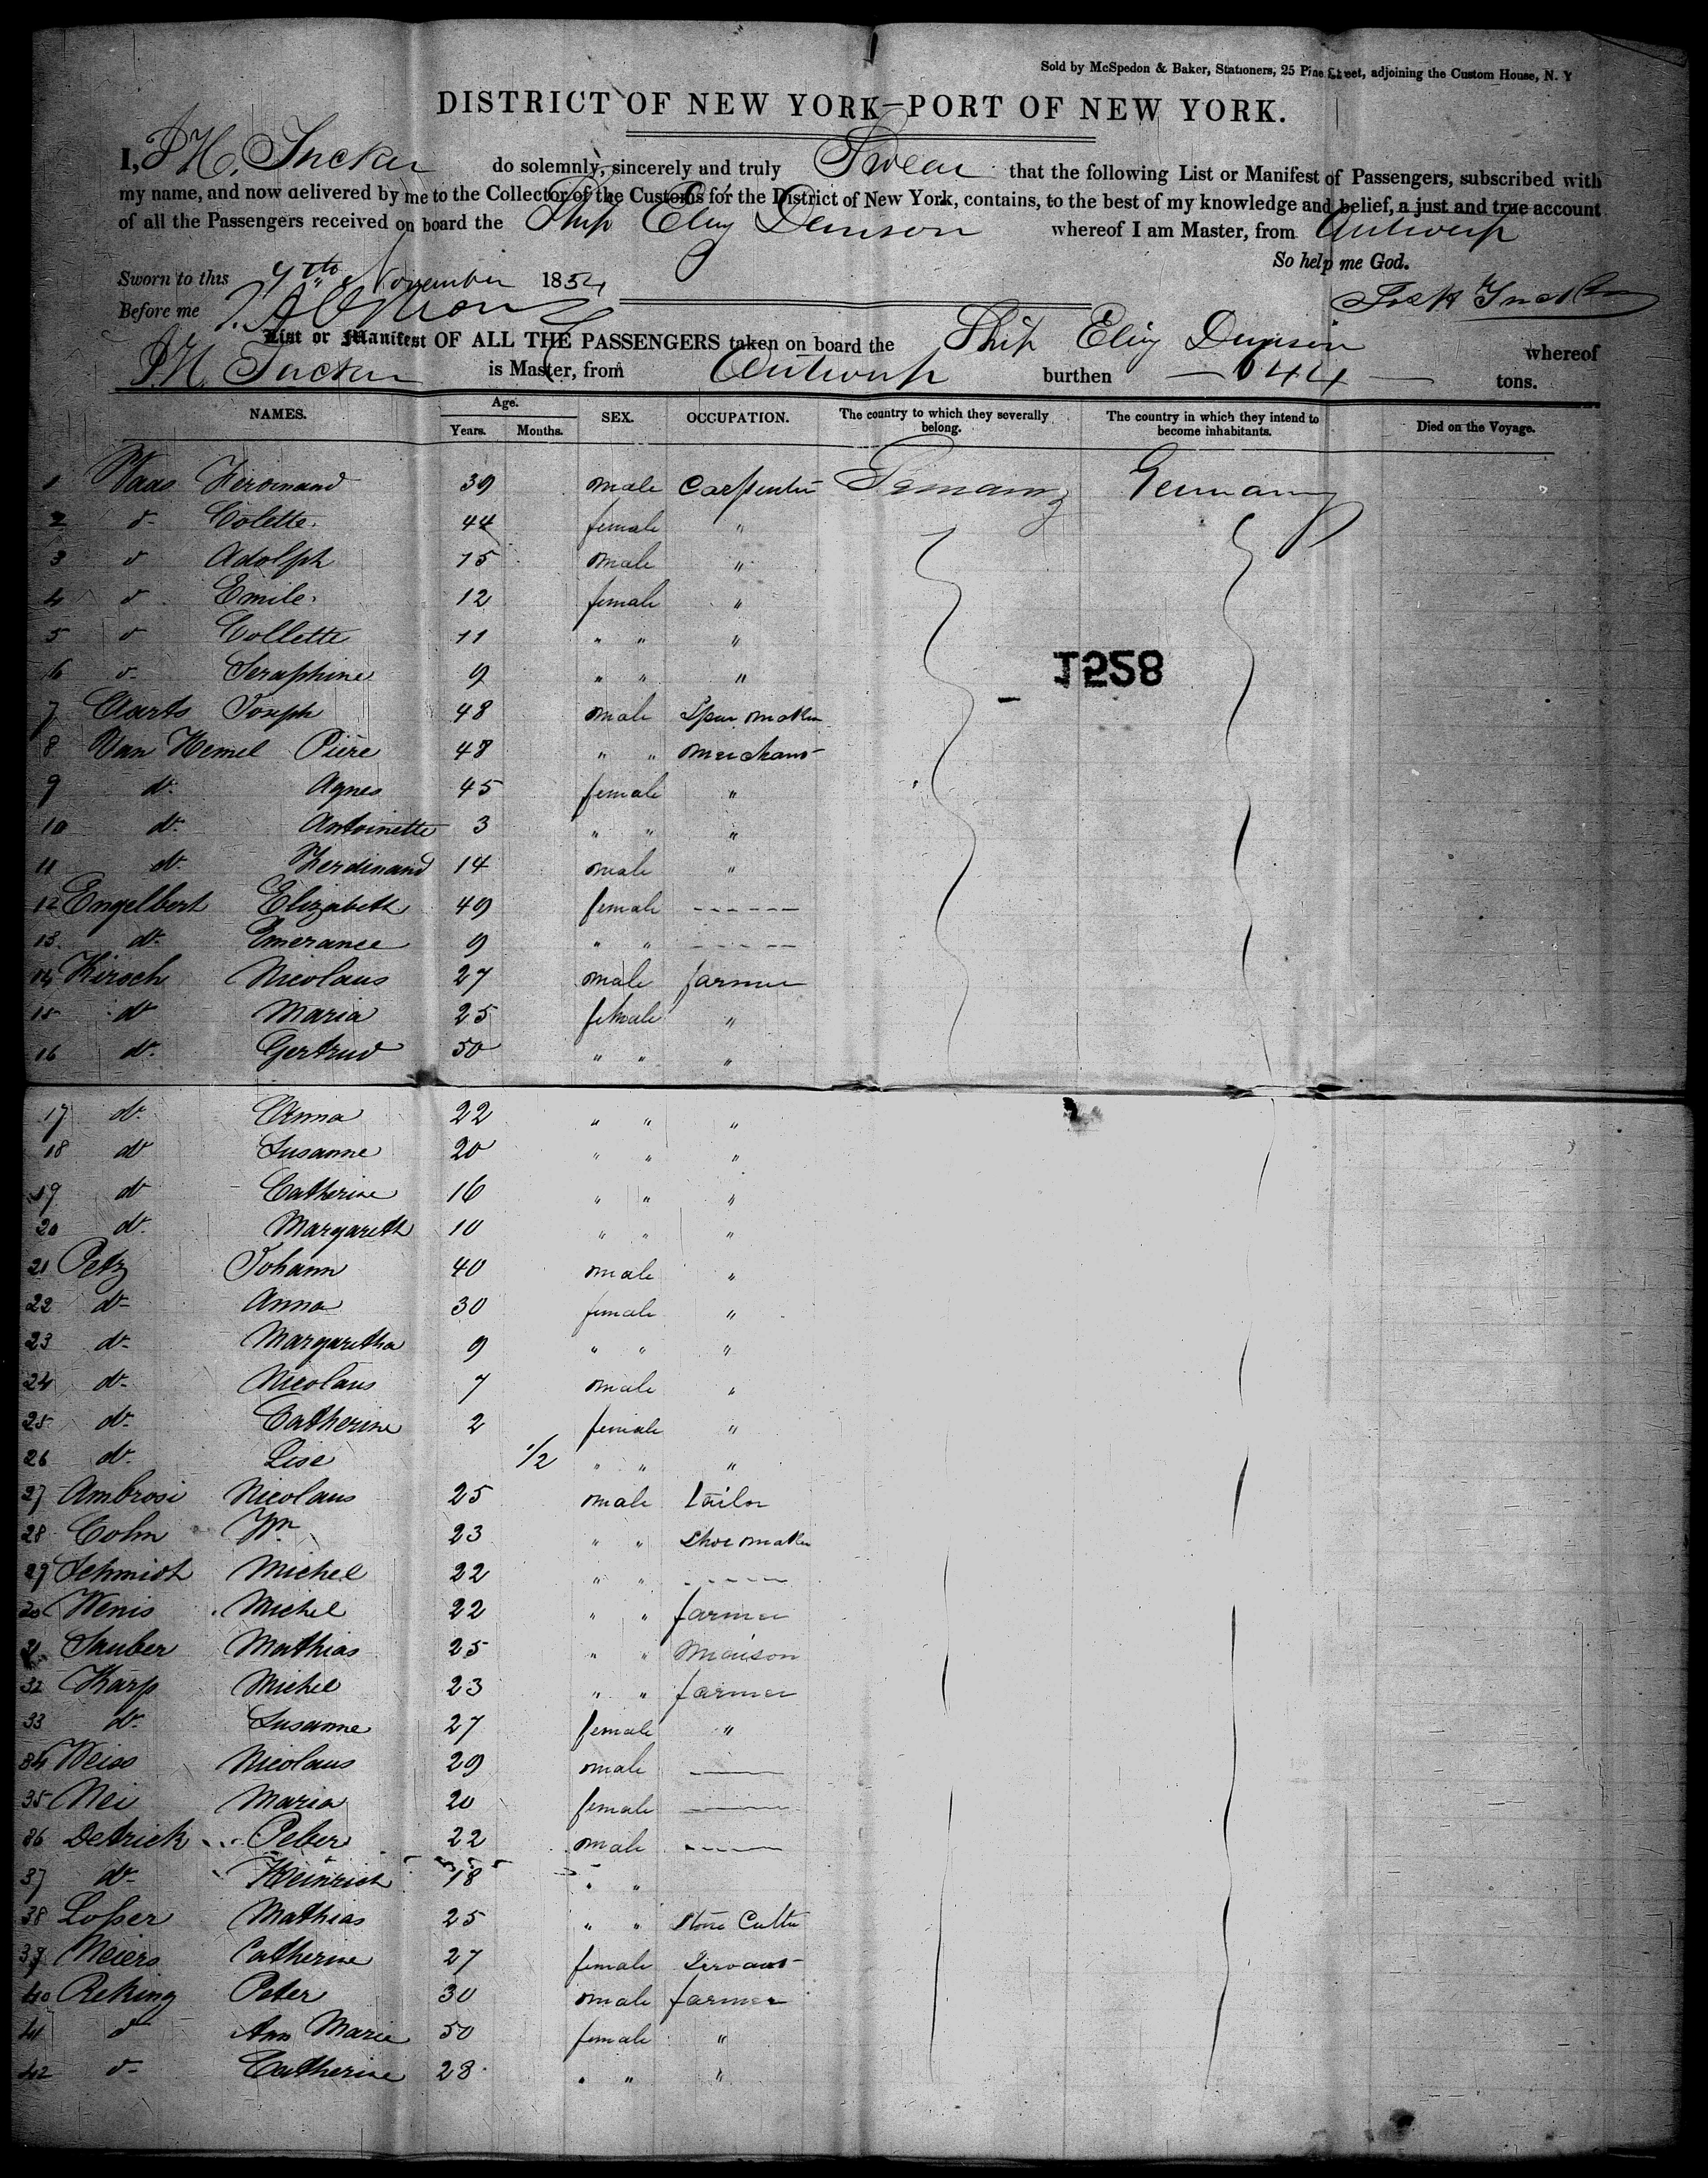 Sold by McSpedon & Baker, Stationers, 25 Pine Street, adjoining the Custom House, N. Y
DISTRICT OF NEW YORK—PORT OF NEW YORK.
I, J H. Tucker do solemnly, sincerely and truly Swear that the following List or Manifest of Passengers, subscribed with
my name, and now delivered by me to the Collector of the Customs for the District of New York, contains, to the best of my knowledge and belief, a just and true account
of all the Passengers received on board the Ship Eliz Denison whereof I am Master, from Antwerp
So help me God.
Sworn to this 7th November 1854
Before me
List or Manifest OF ALL THE PASSENGERS taken on board the Ship Eliz Denison whereof
J H. Tucker is Master, from Antwerp burthen 644 tons.
NAMES. Age. Years. Months. SEX. OCCUPATION. The country to which they severally belong. The country in which they intend to become inhabitants. Died on the Voyage.
1 Waas Ferdinand 39 male Carpenter Germany Germany
2 d- Colette 44 female "
3 d Adolph 15 male "
4 d Emile 12 female "
5 d Collette 11 " " "
6 d- Seraphine 9 " " "
1258
7 Aarts Joseph 48 male Spur maker
8 Van Hemel Piere 48 " " merchant
9 do Agnes 45 female "
10 do Antoinette 3 " " "
11 do Ferdinand 14 male "
12 Engelbert Elizabeth 49 female -----
13 do Emerance 9 " " -----
14 Kirsch Nicolaus 27 male farmer
15 do Maria 25 female "
16 do Gertrud 50 " " "
17 do Anna 22 " " "
18 do Susanne 20 " " "
19 do Catherine 16 " " "
20 do Margareth 10 " " "
21 Petz Johann 40 male "
22 do Anna 30 female "
23 do Margaretha 9 " " "
24 do Nicolaus 7 male "
25 do Catherine 2 female "
26 do Lise 1/2 " " "
27 Ambrosi Nicolaus 25 male tailor
28 Colm Wm 23 " " Shoe maker
29 Schmidt Michel 22 " " -----
30 Wenis Michel 22 " " farmer
31 Sauber Mathias 25 " " Maison
32 Karp Michel 23 " " farmer
33 do Susanne 27 female "
34 Weiss Nicolaus 29 male ——
35 Nei Maria 20 female ——
36 Detrick Peter 22 male -----
37 do Heinrich 18 " "
38 Losser Mathias 25 " " Stone Cutter
39 Meiers Catherine 27 female Servant
40 Reking Peter 30 male farmer
41 d Ann Marie 50 female "
42 d- Catherine 28 " " "